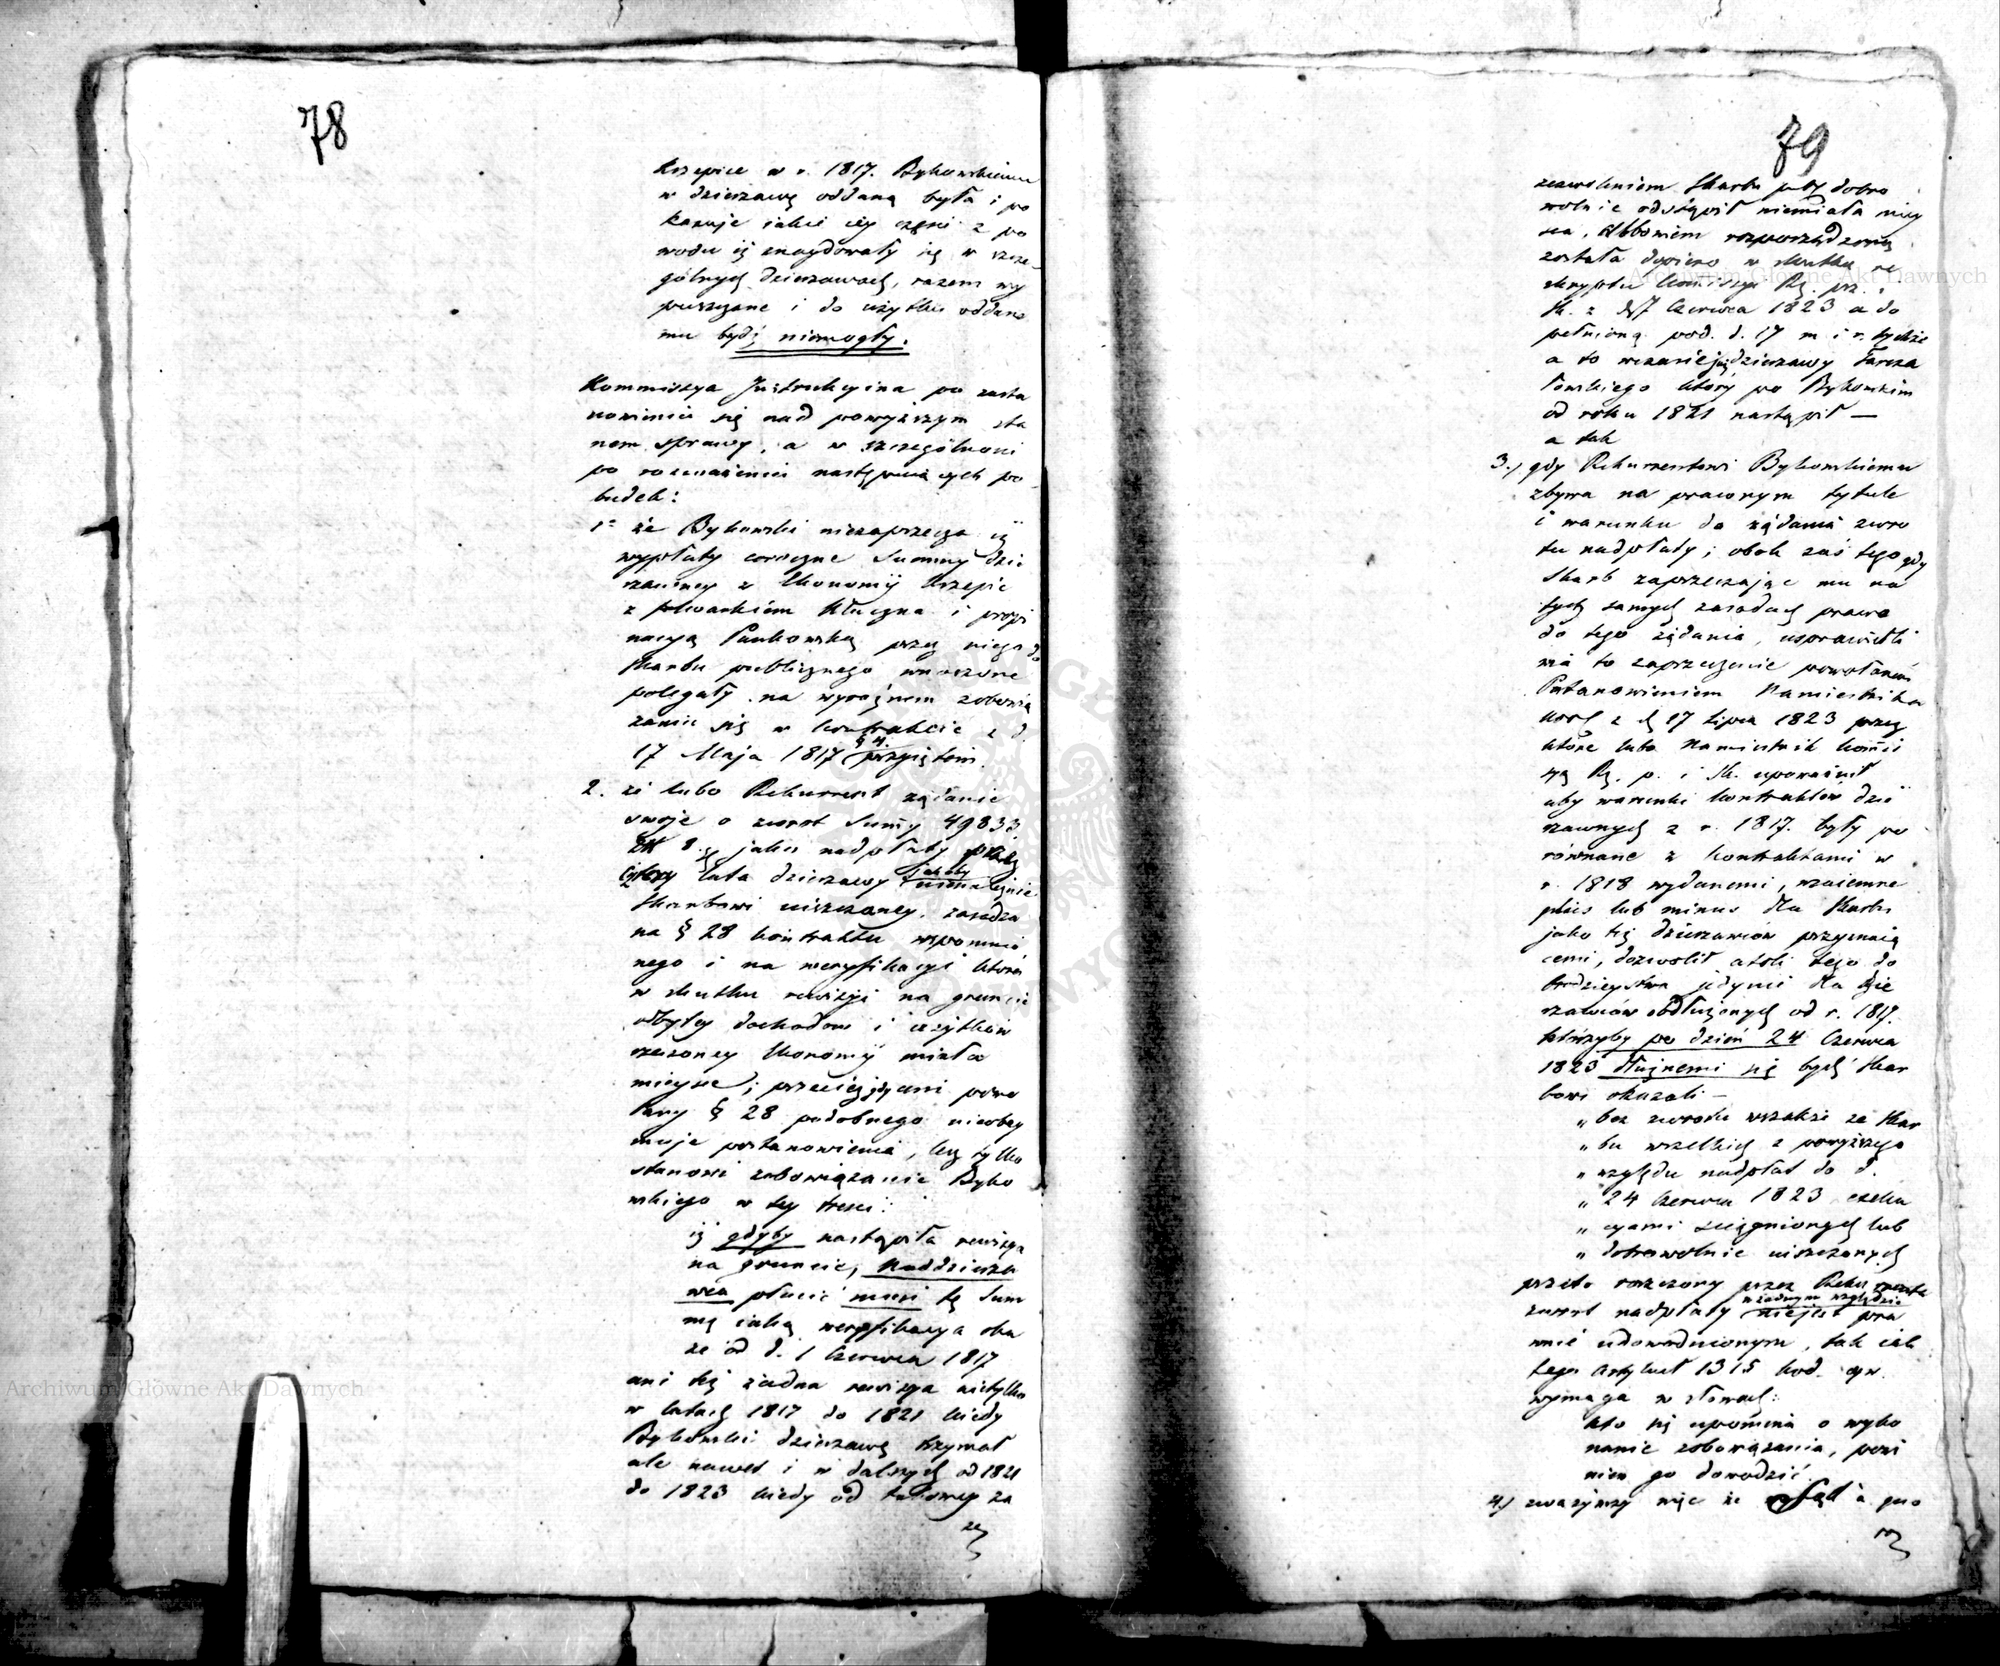 78
Krzepice w r. 1817. Bykowskiemu
w dzierzawę oddaną była i po
kazuje iakie iey części z po
wodu iż znaydowały się w szcze
gólnych dzierzawach, razem wy
puszczone i do użytku oddane
mu bydź niemogły.
Kommissya Instrukcyina po zasta
nowieniu się nad powyższym sta
nem sprawy, a w szczególności
po rozważeniu następuiących po
budek:
1° że Bykowski niezaprzecza iż
wypłaty coroczne Summy dzier
zawney z Ekonomij Krzepic
z folwarkiem Kłuczna i propi
nacyą Pankowską przez niego do
Skarbu publicznego wnoszone
polegały na wyraźnem zobowią
zaniu się w kontrakcie z d.
17 Maja 1817 § 4. przyiętem.
2. że lubo Rekurrent żądanie
swoje o zwrot Summy 49833
Złł 8 gr jako nadpłaty przez
cztery lata dzierzawy jakoby nienależnie
Skarbowi uiszczoney, zasadza
na § 28 kontraktu wspomnio
nego i na weryfikacyi która
w skutku rewizyi na gruncie
odbytey dochodów i użytków
rzeczoney Ekonomij miała
mieysce; przecież gdy ani powo
łany § 28 podobnego nieobey
muje postanowienia, lecz tylko
stanowi zobowiązanie Byko
wskiego w tey treści:
iż gdyby nastąpiła rewizya
na gruncie, Naddzierza
wca płacić musi tę Sum
mę iaką weryfikacya oka
że od d. 1 Czerwca 1817
ani też żadna rewizya nietylko
w latach 1817 do 1821 kiedy
Bykowski dzierzawę trzymał
ale nawet i w dalszych od 1821
do 1823 kiedy od takowey za
ze
79
zezwoleniem Skarbu już dobro
wolnie odstąpił niemiała miey
sca, albowiem rozporządzoną
została dopiero w skutku re
skryptu Kommissyi Rz. prz. i
Sk. z d. 7 Czerwca 1823 a do
pełnioną pod d. 17 m. i r. tychże
a to w czasie już dzierzawy Tarcza
łowskiego który po Bykowskim
od roku 1821 nastąpił —
a tak
3.) gdy Rekurrentowi Bykowskiemu
zbywa na prawnym tytule
i warunku do żądania zwro
tu nadpłaty; obok zaś tego gdy
Skarb zaprzeczając mu na
tych samych zasadach prawa
do tego żądania, usprawiedli
wia to zaprzeczenie powołanem
Postanowieniem Namiestnika
Król z d. 17 Lipca 1823 przez
które lubo Namiestnik Kommis
syą Rz. p. i Sk. upoważnił
aby warunki kontraktów dzier
zawnych z r. 1817. były po
równane z kontraktami w
r. 1818 wydanemi, wzaiemne
plus lub minus dla Skarbu
jako też dzierzawców przyznaią
cemi, dozwolił atoli tego do
brodzieystwa jedynie dla dzier
zawców obdłużonych od r. 1817.
którzyby po dzień 24 Czerwca
1823 dłużnemi się bydź Skar
bowi okazali —
„ bez zwrotu wszakże ze Skar
„ bu wszelkich z powyższego
„ względu nadpłat do d.
„ 24 Czerwca 1823 exeku
„ cyami ściągnionych lub
„ dobrowolnie uiszczonych
przeto rzeczony przez Rekurrenta
zwrot nadpłaty w żadnym względzie niejest pra
wnie udowodnionym, tak iak
tego Artykuł 1315 kod. cyw.
wymaga w słowach:
kto się upomina o wyko
nanie zobowiązania, powi
nien go dowodzić.
4.) zważywszy więc że a quo